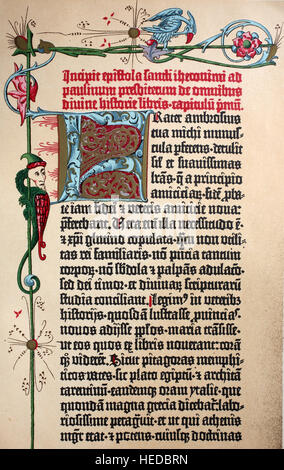 Incipit epistola sancti iheronimi ad
paulinum presbiterum de omnibus
divine historie libris. capitulū pmū.
FRater ambrosius
tua michi munus-
cula pferens. detulit
sil et suavissimas
lras. q̄ a principio
amiciciaȝ. fidē pba-
te iam fidei et veteris amicicie nova
pferebant. Vera eni illa necessitudo ē.
et xp̄i glutino copulata. quam non utili-
tas rei familiaris. non pn̄cia tantum
corpoȝ. nō sbdola et palpās adulaco.
sed dei timor. et divinaȝ scripturarū
studia conciliant. Legim̄ in veteribȝ
historijs. quosdā lustrasse puincias.
novos adijsse pplos. maria trāsisse.
ut eos quos ex libris noverant: corā
qȝ viderēt. Sicut pitagoras memphi-
ticos vates. sic plato egiptū. et architā
tarentinū. eandemqȝ oram ytalie. que
quondā magna grecia dicebat̄: labo-
riosissime peragravit. et ut qui athenis
mgr̄ erat. et potens. cuiusqȝ doctrinas
alamy stock photo
HEDBRN